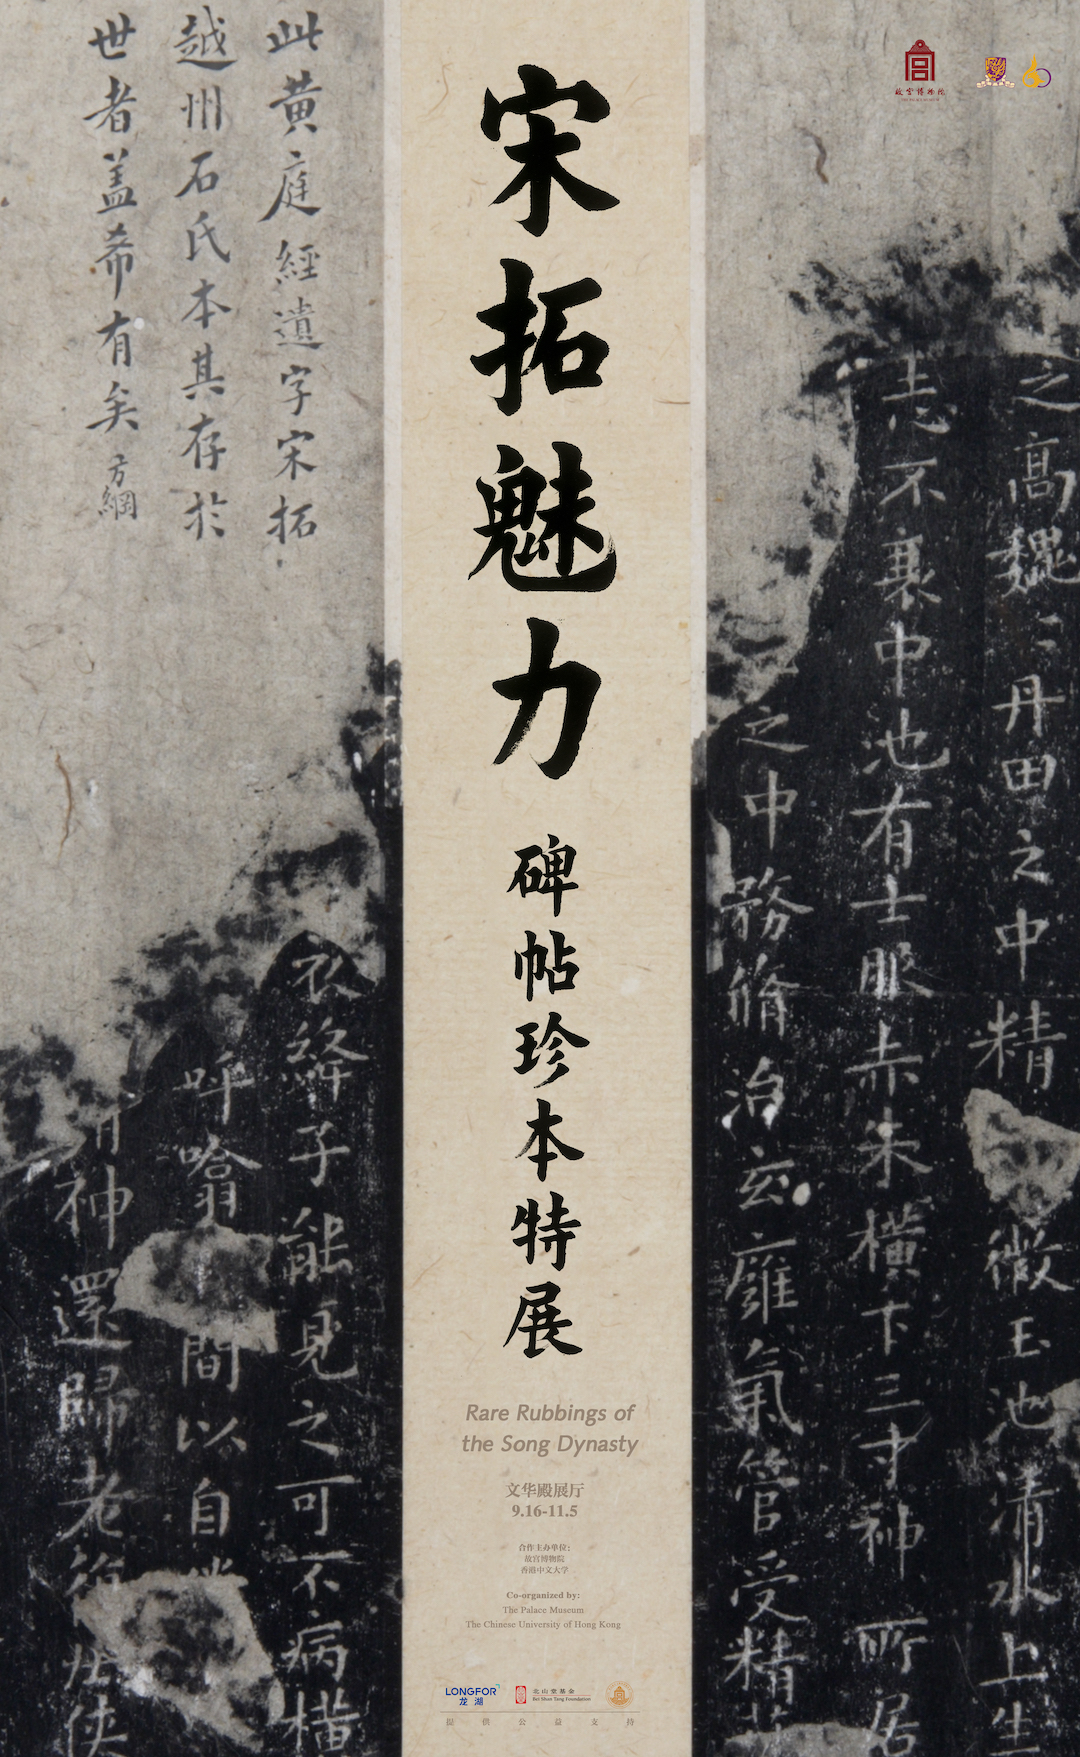 宋拓魅力
碑帖珍本特展
Rare Rubbings of
the Song Dynasty
文华殿展厅
9.16-11.5
合作主办单位：
故宫博物院
香港中文大学
Co-organized by:
The Palace Museum
The Chinese University of Hong Kong
LONGFOR
龙湖
北山堂基金
Bei Shan Tang Foundation
提供公益支持
故宫博物院
此黄庭經遺字宋拓
越州石氏本其存於
世者盖希有矣
方綱
之高魏
丹田之中精
微玉池清水上生
志不衰中池有士服赤朱横下三寸神所居
之中務脩治玄廱氣管受精
衣絳子能見之可不病横
呼噏
間以自
神還歸老
侠